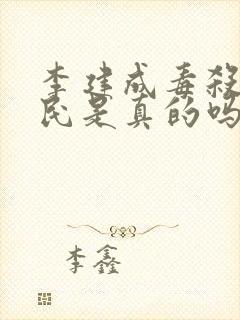 李建成毒殺
民是真的吗
李鑫